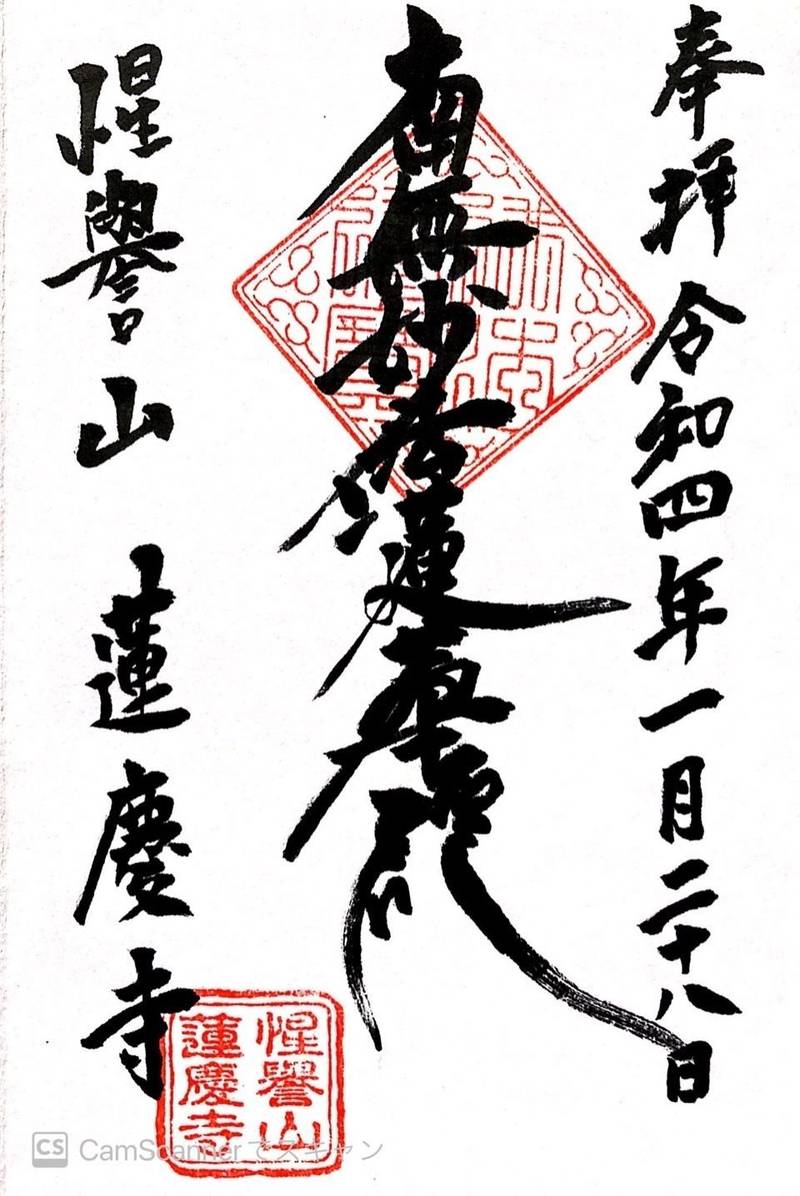 奉拝 令和四年一月二十八日
南無妙法蓮華經
惺譽山 蓮慶寺
惺譽山
蓮慶寺
CS CamScannerでスキャン